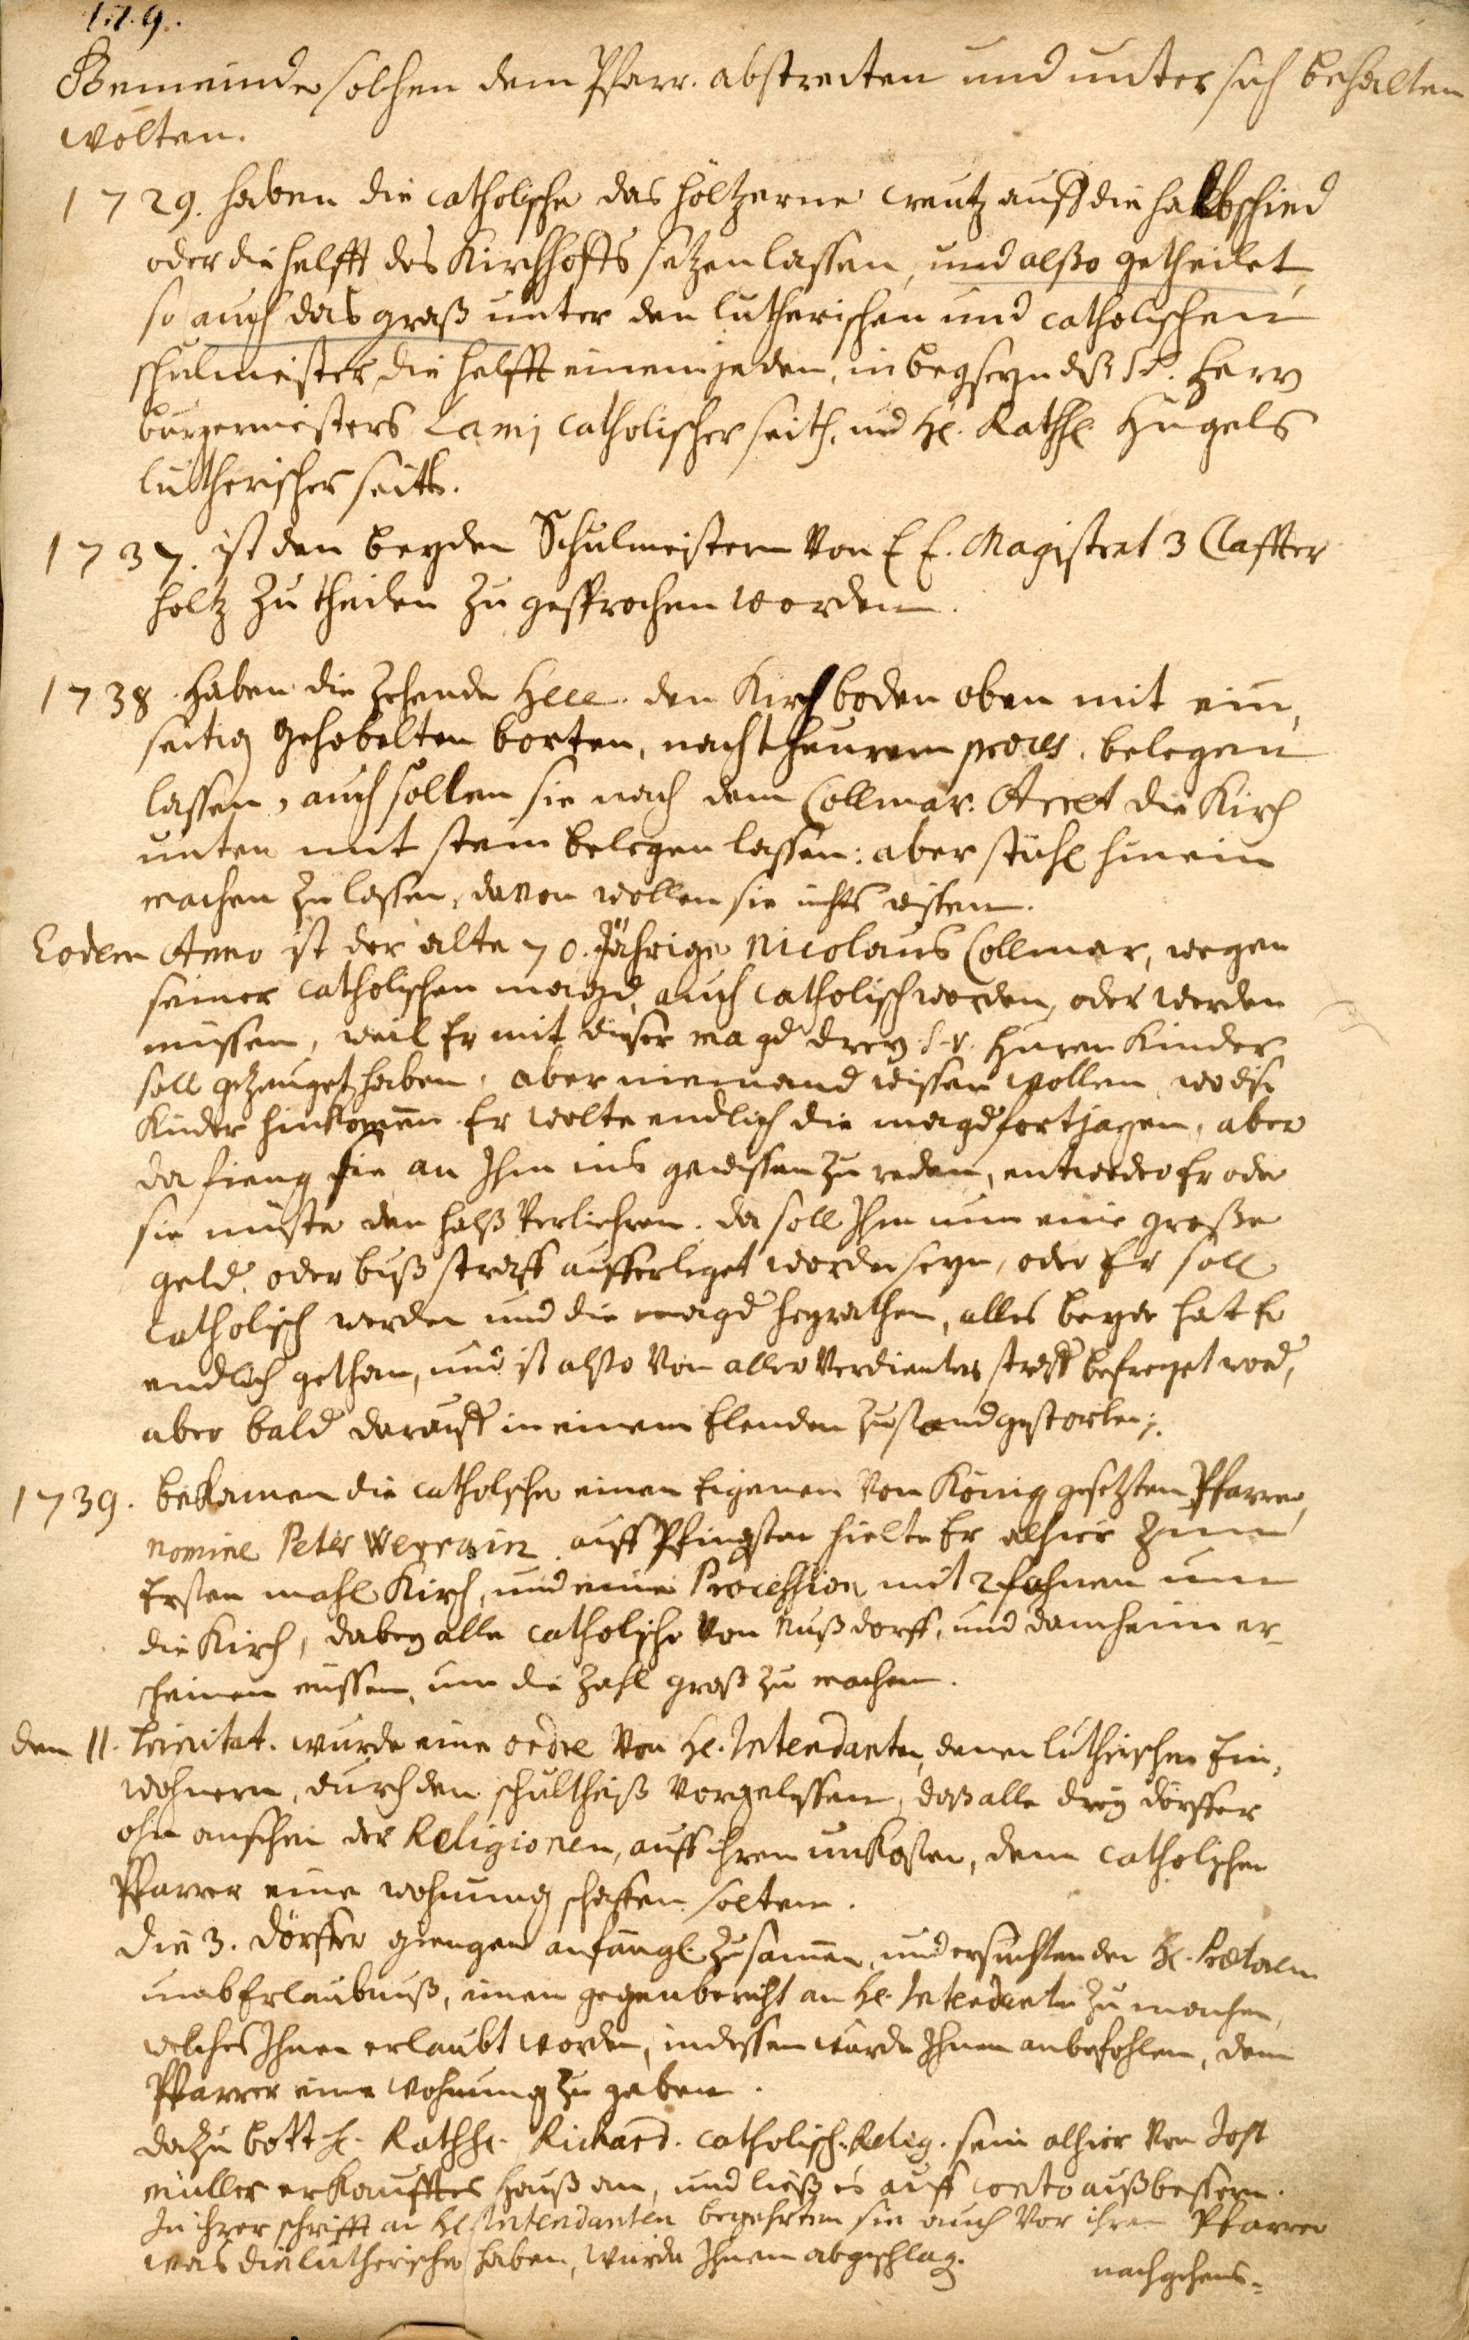 179.
Gemeinde solchen dem Pfarr. abstreiten und unter sich behalten
wolten.
1729. haben die catholische das höltzerne creutz auff die halbschied
oder die helfft des Kirchhoffs setzen lassen, und alßo getheilet,
so auch das graß unter den lutherischen und catholischen
schulmeister, die helfft einem jeden, in beyseyn deß Hl. Herrn
burgermeisters Lamj catholischer seith, und Hl. Rathh. Hügels
lutherischer seith.
1737. ist den beyden Schulmeistern Von E E. Magistrat 3 Claffter
holtz zu theilen zu gesprochen worden.
1738. haben die Zehende Hlle. den Kirchboden oben mit ein,
seitig gehobelten borten, nach theurem proces, belegen
lassen, auch sollen sie nach dem Collmar. Arret die Kirch
unten mit stein belegen lassen: aber stühl hinein
machen zu lassen, davon wollen sie nichts wissen.
Eodem Anno ist der alte 70. Jährige Nicolaus Collmar, wegen
seiner catholischen magd, auch catholisch worden, oder werden
müssen, weil Er mit dieser magd drey s.v. Huren Kinder
soll gezeuget haben, aber niemand wissen wollen, wo dise
Kinder hinkomen. Er wolte endlich die magd fortjagen, aber
da fieng sie an Ihm ins gewissen zu reden, entweder Er oder
sie müste den halß Verliehren. da soll Ihm nun eine große
geld, oder buß straff aufferleget worden seyn, oder Er soll
catholisch werden und die magd heyrathen, alles beyde hat Er
endlich gethan, und ist alßo Von aller Verdienten straff befreyet word,
aber bald darauff in einem Elenden zustand gestorben.
1739. bekamen die catholische einen Eigenen Von König gesetzten Pfarrer,
nomine Peter Werrain. auff Pfingsten hielte Er alhier zum
Ersten mahl Kirch, und eine Procession mit 2 fahnen um
die Kirch, dabey alle catholische Von Nußdorff, und damheim er-
scheinen müssen, um die Zahl groß zu machen.
den 11. Trinitat. wurde eine ordre Von Hl. Intendanten, denen lutherischen Ein,
wohnern, durch den schultheiß Vorgelessen, daß alle drey dörffer
ohn ansehen der Religionen, auff ihren unkosten, dem catholischen
Pfarrer eine wohnung schaffen solten.
Die 3. dörffer giengen anfängl. zusamen, und ersuchten den Hl.
um Erlaubnuß, einen gegenbericht an Hl. Intendanten zu machen,
welches Ihnen erlaubt worden, indessen wurde Ihnen anbefohlen, dem
Pfarrer eine wohnung zu geben.
dazu bott H. Rathh. Richard. catholisch. Relig. sein alhier Von Jost
Müller erkaufftes hauß an, und ließ es auff conto außbessern.
In ihrer schrifft an Hl. Intendanten begehrten sie auch Vor ihren Pfarrer
was die lutherische haben, wurde Ihnen abgeschlag.
nachgehens-